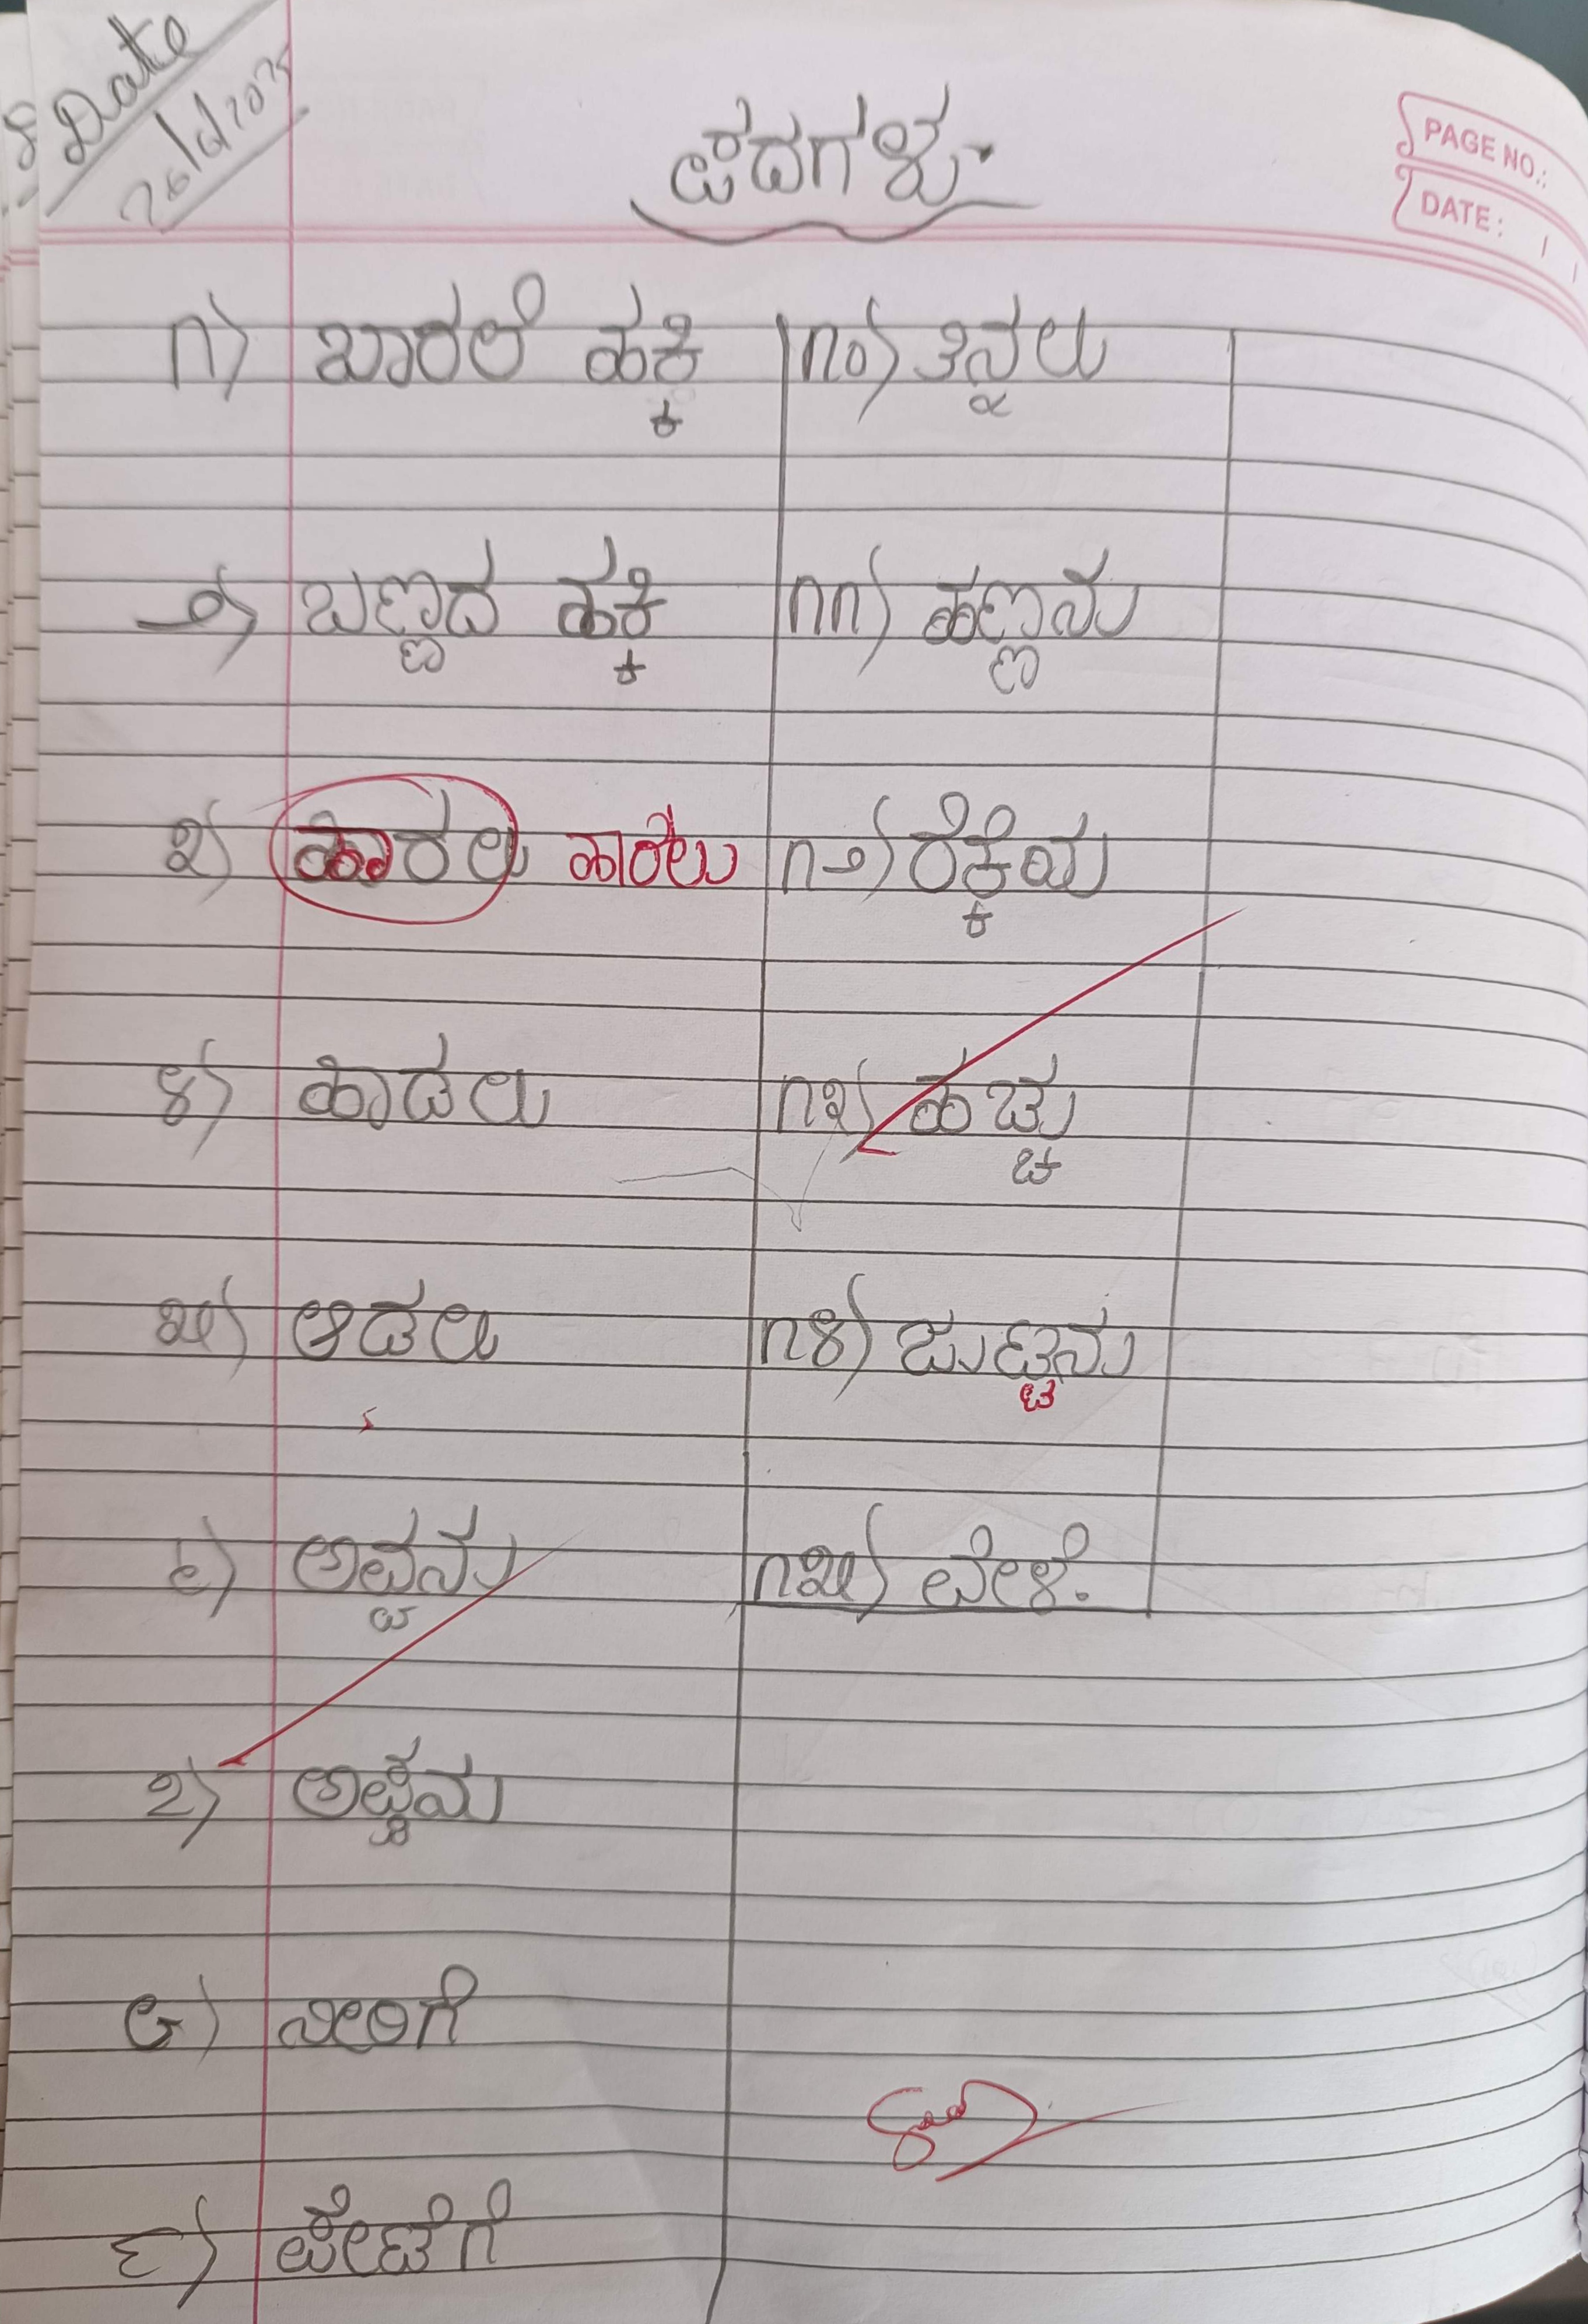 Date
26/6/2025
ಪದಗಳು.
PAGE NO.:
DATE: / /
೧) ಬಾರಲೆ ಹಕ್ಕಿ
೨) ಬಣ್ಣದ ಹಕ್ಕಿ
೩) ಹಾರಲು ಹಾರಲು
೪) ಹಾಡಲು
೫) ಆಡಲು
೬) ಅಪ್ಪನು
೭) ಅಲ್ಲಿಯ
೮) ನೀರಿಗೆ
೯) ಪೇಟೆಗೆ
೧೦) ತಿನ್ನಲು
೧೧) ಹಣ್ಣನು
೧೨) ರೆಕ್ಕೆಯ
೧೩) ಹಚ್ಚು
೧೪) ಜುಟ್ಟನು
೧೫) ವೇಳೆ.